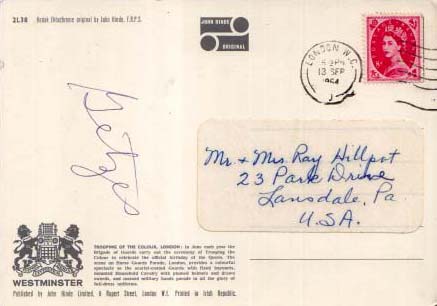 2L38 Kodak Ektachrome original by John Hinde, F.R.P.S.
JOHN HINDE
ORIGINAL
LONDON W.C.
13 SEP
1964
Mr. + Mrs. Ray Hillpot
23 Park Drive
Lansdale, Pa.
U.S.A.
TROOPING OF THE COLOUR, LONDON: In June each year the
Brigade of Guards carry out the ceremony of Trooping the
Colour to celebrate the official birthday of the Queen. The
scene on Horse Guards Parade, London, provides a colourful
spectacle as the scarlet-coated Guards with fixed bayonets,
mounted Household Cavalry with plumed helmets and drawn
swords, and massed military bands parade in all the glory of
full-dress uniforms.
WESTMINSTER
Published by John Hinde Limited, 6 Rupert Street, London W.1. Printed in Irish Republic.